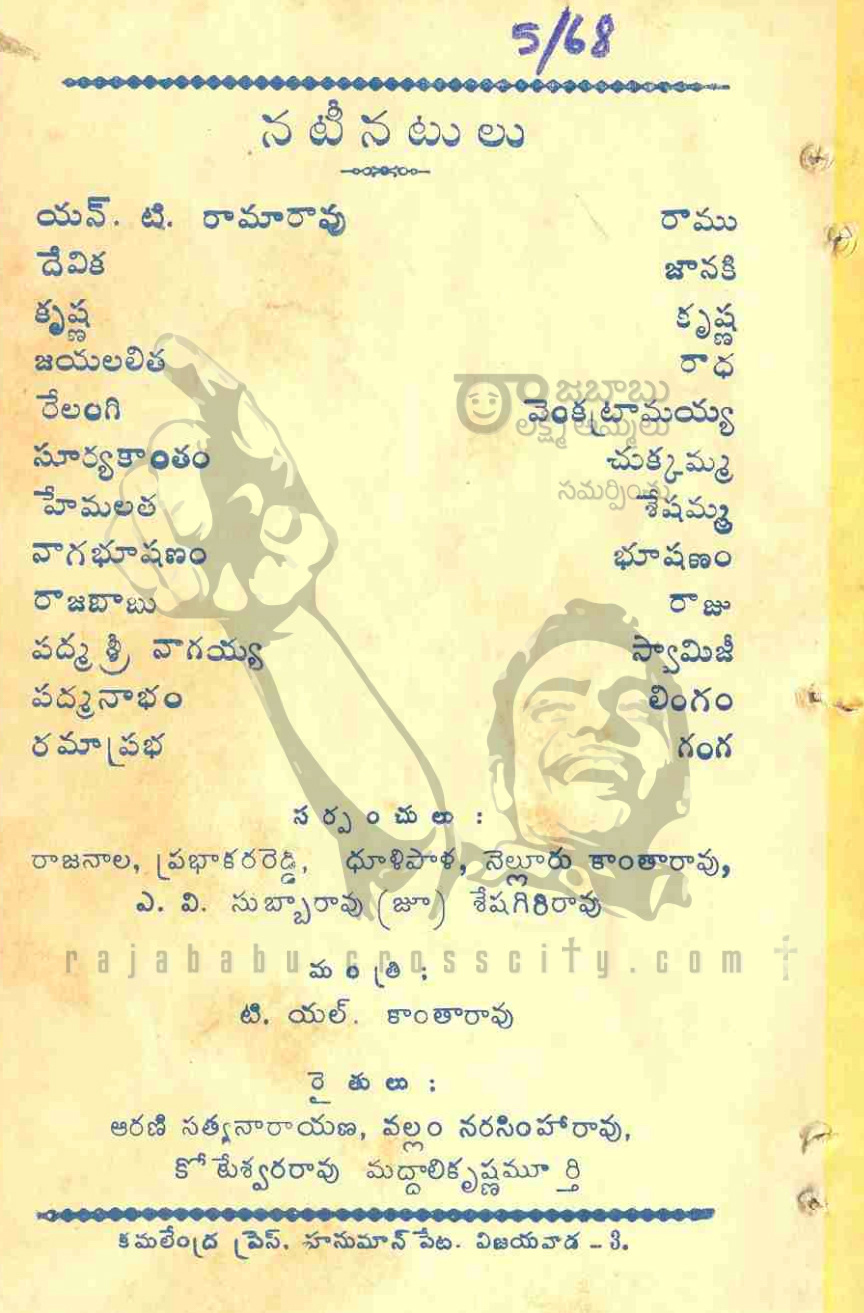 5/68
నటీనటులు
యన్. టి. రామారావు రాము
దేవిక జానకి
కృష్ణ కృష్ణ
జయలలిత రాధ
రేలంగి వెంకట్రామయ్య
సూర్యకాంతం చుక్కమ్మ
హేమలత శేషమ్మ
నాగభూషణం భూషణం
రాజబాబు రాజు
పద్మశ్రీ నాగయ్య స్వామిజీ
పద్మనాభం లింగం
రమాప్రభ గంగ
రాజబాబు
లక్ష్మీ అమ్మలు
సమర్పించు
సర్పంచులు :
రాజనాల, ప్రభాకరరెడ్డి, ధూళిపాళ, నెల్లూరు కాంతారావు,
ఎ. వి. సుబ్బారావు (జూ) శేషగిరిరావు
rajababu.crosscity.com
మంత్రి :
టి. యల్. కాంతారావు
రైతులు :
ఆరణి సత్యనారాయణ, వల్లం నరసింహారావు,
కోటేశ్వరరావు మద్దాలికృష్ణమూర్తి
కమలేంద్ర ప్రెస్. హనుమాన్ పేట. విజయవాడ - 3.